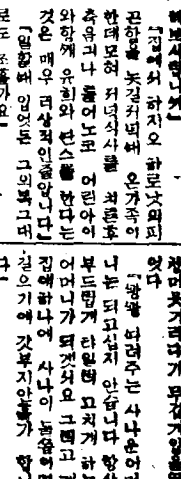 「집에서 하지오 하로낫의피
곤함을 늣길저녁때 온가족이
한데모혀 저녁식사를 치른후
축음긔나 틀어노코 어린아이
와함께 유희와 딴스를 한다는
것은 매우 리상적인줄압니다」
「일할때 입엇든 그의복그대
로도 조흘가요」
무겁게입을열
엇다
「왕왕 따려주는 사나운어머
니는 되고십지 안습니다 항상
부드럽게 타일러 고치게 하는
어머니가 되겟서요 그리고
집애하나에 사나이 둘쯤이면
길으기에 갓부지안흘가 합니
다」